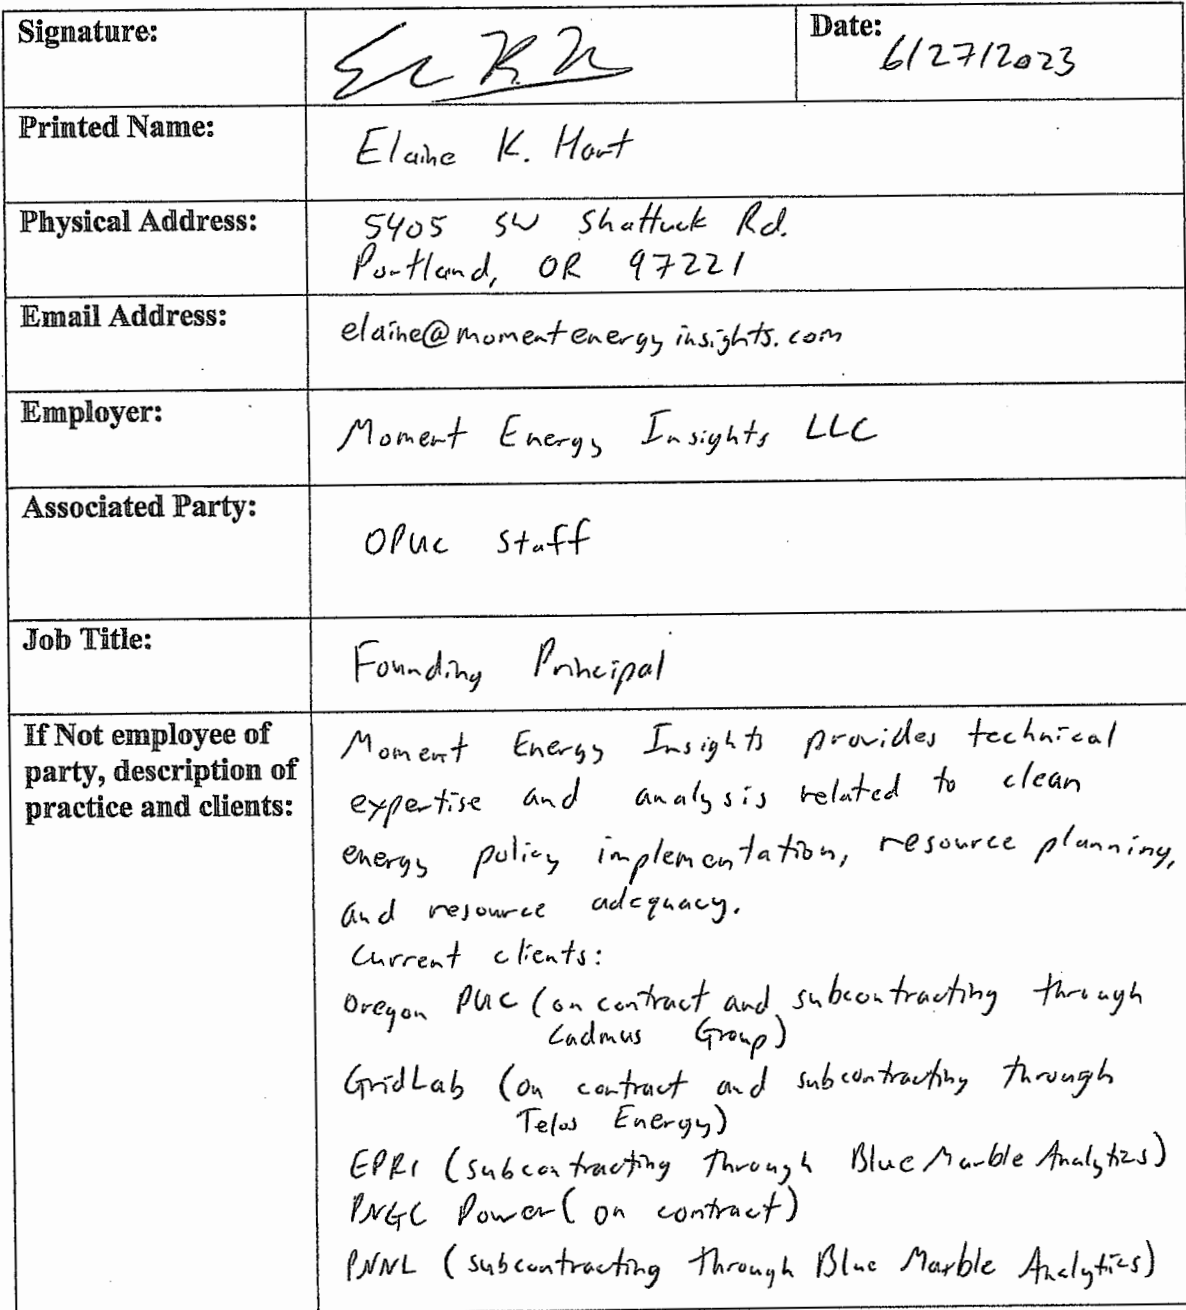 Signature:
Date: 6/27/2023
Printed Name: Elaine K. Hart
Physical Address: 5405 SW Shattuck Rd.
Portland, OR 97221
Email Address: elaine@momentenergyinsights.com
Employer: Moment Energy Insights LLC
Associated Party: OPUC Staff
Job Title: Founding Principal
If Not employee of
party, description of
practice and clients:
Moment Energy Insights provides technical
expertise and analysis related to clean
energy policy implementation, resource planning,
and resource adequacy.
Current clients:
Oregon PUC (on contract and subcontracting through
Cadmus Group)
GridLab (on contract and subcontracting through
Telos Energy)
EPRI (subcontracting through Blue Marble Analytics)
PNGC Power (on contract)
PNNL (subcontracting through Blue Marble Analytics)